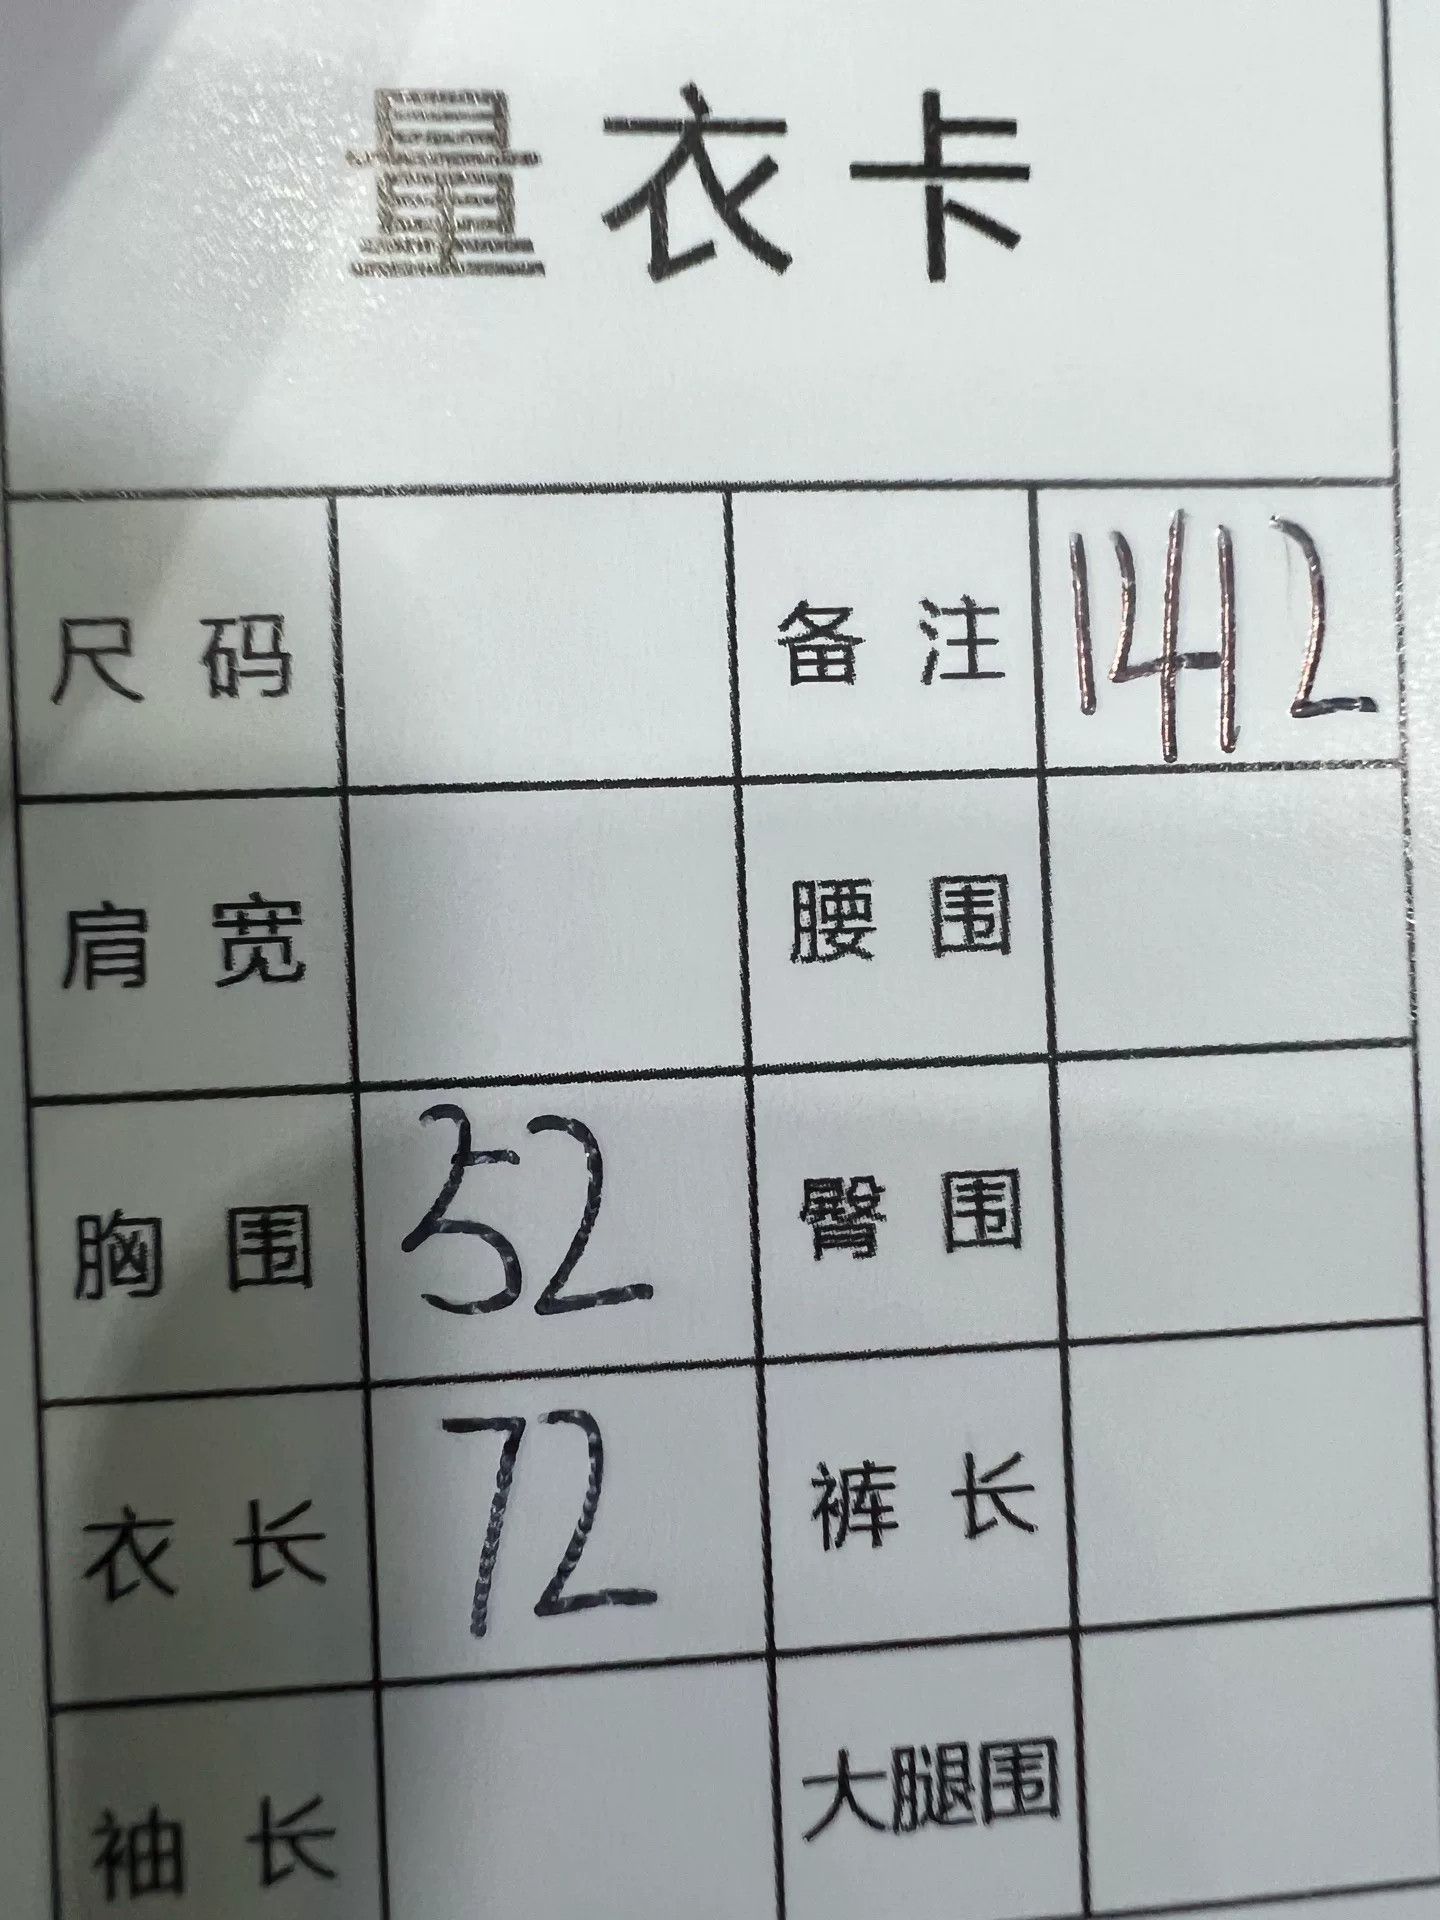 量衣卡
尺码 备注 1412
肩宽 腰围
胸围 52 臀围
衣长 72 裤长
袖长 大腿围